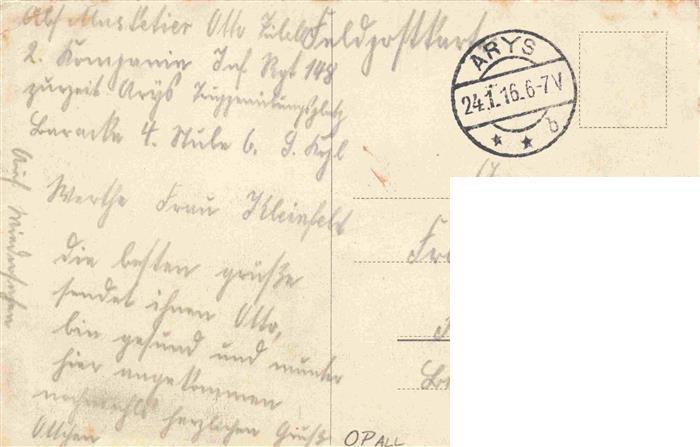 Abs Musketier Otto
Feldpostkart
2. Kompanie Inf Rgt 148
zurzeit Arys Truppenübungsplatz
Baracke 4. Stube 6.
ARYS
24.1.16.6-7V
* * b
Werthe Frau Kleinfeld
die besten grüße
sendet ihnen Otto,
bin gesund und munter
hier angekommen
nochmahls herzlichen Gruß
Ottchen
Auf Wiedersehen
Fr
OPALL